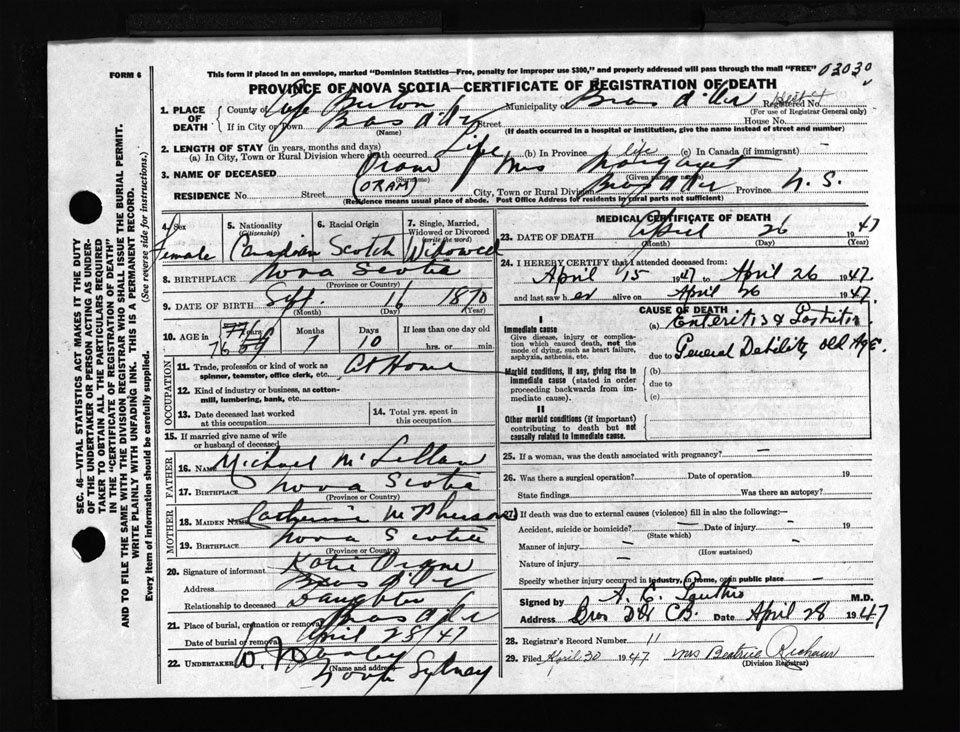 FORM 6
This form if placed in an envelope, marked "Dominion Statistics—Free, penalty for improper use $300," and properly addressed will pass through the mail "FREE"
03030
PROVINCE OF NOVA SCOTIA—CERTIFICATE OF REGISTRATION OF DEATH
1. PLACE OF DEATH
County of Cape Breton Municipality Bras d'Or Registered No.
(For use of Registrar General only)
If in City or Town Bras d'Or Street House No.
(Name) (If death occurred in a hospital or institution, give the name instead of street and number)
2. LENGTH OF STAY (in years, months and days)
(a) In City, Town or Rural Division where death occurred Life (b) In Province life (c) In Canada (if immigrant) —
3. NAME OF DECEASED Oram Mrs Margaret
(Surname) (Given names)
(ORAM)
RESIDENCE No. Street City, Town or Rural Division Bras d'Or Province N. S.
(Residence means usual place of abode. Post Office Address for residents in rural parts not sufficient)
4. Sex Female
5. Nationality (Citizenship) Canadian
6. Racial Origin Scotch
7. Single, Married, Widowed or Divorced (write the word) Widowed
8. BIRTHPLACE Nova Scotia
(Province or Country)
9. DATE OF BIRTH Sept. 16 1870
(Month) (Day) (Year)
10. AGE in Years 76 Months 7 Days 10 If less than one day old
hrs. or min.
OCCUPATION
11. Trade, profession or kind of work as spinner, teamster, office clerk, etc. At Home
12. Kind of industry or business, as cotton-mill, lumbering, bank, etc.
13. Date deceased last worked at this occupation
14. Total yrs. spent in this occupation
15. If married give name of wife or husband of deceased
FATHER
16. Name Michael McLellan
17. Birthplace Nova Scotia
(Province or Country)
MOTHER
18. Maiden Name Catherine McPherson
19. Birthplace Nova Scotia
(Province or Country)
20. Signature of informant Katie Orame
Address Bras d'Or
Relationship to deceased Daughter
21. Place of burial, cremation or removal Bras d'Or
Date of burial or removal April 28/47
22. UNDERTAKER
(Name and address)
North Sydney
MEDICAL CERTIFICATE OF DEATH
23. DATE OF DEATH April 26 1947
(Month) (Day) (Year)
24. I HEREBY CERTIFY that I attended deceased from:
April 15 1947 to April 26 1947
and last saw her alive on April 26 1947.
CAUSE OF DEATH
I
Immediate cause
Give disease, injury or complication which caused death, not the mode of dying, such as heart failure, asphyxia, asthenia, etc.
(a) Enteritis & Gastritis.
due to General Debility, old Age.
Morbid conditions, if any, giving rise to immediate cause (stated in order proceeding backwards from immediate cause).
(b)
due to
(c)
II
Other morbid conditions (if important) contributing to death but not causally related to immediate cause.
25. If a woman, was the death associated with pregnancy? —
26. Was there a surgical operation? Date of operation 19
State findings Was there an autopsy?
27. If death was due to external causes (violence) fill in also the following:—
Accident, suicide or homicide? — Date of injury — 19
(State which)
Manner of injury —
(How sustained)
Nature of injury —
Specify whether injury occurred in industry, in home, or in public place —
Signed by M.D.
Address Bras D'Or C.B. Date April 28 1947
28. Registrar's Record Number 11
29. Filed April 30 1947 Mrs Beatrice
(Division Registrar)
SEC. 46—VITAL STATISTICS ACT MAKES IT THE DUTY
OF THE UNDERTAKER OR PERSON ACTING AS UNDER-
TAKER TO OBTAIN ALL THE PARTICULARS REQUIRED
IN THE "CERTIFICATE OF REGISTRATION OF DEATH"
AND TO FILE THE SAME WITH THE DIVISION REGISTRAR WHO SHALL ISSUE THE BURIAL PERMIT.
WRITE PLAINLY WITH UNFADING INK. THIS IS A PERMANENT RECORD.
Every item of information should be carefully supplied. (See reverse side for instructions.)